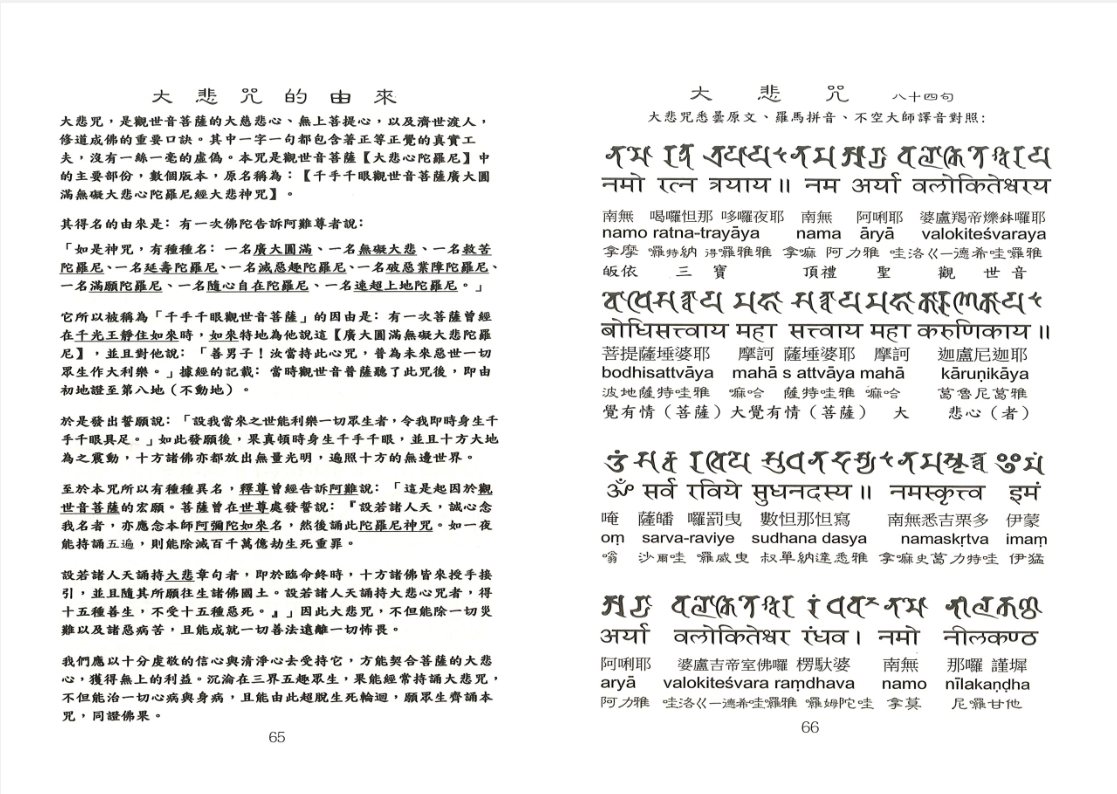 大悲咒的由來
大悲咒，是觀世音菩薩的大慈悲心、無上菩提心，以及濟世渡人，
修道成佛的重要口訣。其中一字一句都包含著正等正覺的真實工
夫，沒有一絲一毫的虛偽。本咒是觀世音菩薩【大悲心陀羅尼】中
的主要部份，數個版本，原名稱為：【千手千眼觀世音菩薩廣大圓
滿無礙大悲心陀羅尼經大悲神咒】。
其得名的由來是：有一次佛陀告訴阿難尊者說：
「如是神咒，有種種名：一名廣大圓滿、一名無礙大悲、一名救苦
陀羅尼、一名延壽陀羅尼、一名滅惡趣陀羅尼、一名破惡業障陀羅尼、
一名滿願陀羅尼、一名隨心自在陀羅尼、一名速超上地陀羅尼。」
它所以被稱為「千手千眼觀世音菩薩」的因由是：有一次菩薩曾經
在千光王靜住如來時，如來特地為他說這【廣大圓滿無礙大悲陀羅
尼】，並且對他說：「善男子！汝當持此心咒，普為未來惡世一切
眾生作大利樂。」據經的記載：當時觀世音普薩聽了此咒後，即由
初地證至第八地（不動地）。
於是發出誓願說：「設我當來之世能利樂一切眾生者，令我即時身生千
手千眼具足。」如此發願後，果真頓時身生千手千眼，並且十方大地
為之震動，十方諸佛亦都放出無量光明，遍照十方的無邊世界。
至於本咒所以有種種異名，釋尊曾經告訴阿難說：「這是起因於觀
世音菩薩的宏願。菩薩曾在世尊處發誓說：『設若諸人天，誠心念
我名者，亦應念本師阿彌陀如來名，然後誦此陀羅尼神咒。如一夜
能持誦五遍，則能除滅百千萬億劫生死重罪。
設若諸人天誦持大悲章句者，即於臨命終時，十方諸佛皆來授手接
引，並且隨其所願往生諸佛國土。設若諸人天誦持大悲心咒者，得
十五種善生，不受十五種惡死。』」因此大悲咒，不但能除一切災
難以及諸惡病苦，且能成就一切善法遠離一切怖畏。
我們應以十分虔敬的信心與清淨心去受持它，方能契合菩薩的大悲
心，獲得無上的利益。沉淪在三界五趣眾生，果能經常持誦大悲咒，
不但能治一切心病與身病，且能由此超脫生死輪迴，願眾生齊誦本
咒，同證佛果。
65
大悲咒 八十四句
大悲咒悉曇原文、羅馬拼音、不空大師譯音對照：
नमो रत्न त्रयाय ॥ नम अर्या वलोकितेश्वरय
南無 喝囉怛那 哆囉夜耶 南無 阿唎耶 婆盧羯帝爍鉢囉耶
namo ratna-trayāya nama āryā valokiteśvaraya
拿摩 囉特納 得囉雅雅 拿嘛 阿力雅 哇洛ㄍ一德希哇囉雅
皈依 三 寶 頂禮 聖 觀 世 音
बोधिसत्त्वाय महा सत्त्वाय महा करुणिकाय ॥
菩提薩埵婆耶 摩訶 薩埵婆耶 摩訶 迦盧尼迦耶
bodhisattvāya mahā s attvāya mahā kāruṇikāya
波地薩特哇雅 嘛哈 薩特哇雅 嘛哈 葛魯尼葛雅
覺有情（菩薩）大覺有情（菩薩） 大 悲心（者）
ॐ सर्व रविये सुधनदस्य ॥ नमस्कृत्त्व इमं
唵 薩皤 囉罰曳 數怛那怛寫 南無悉吉栗多 伊蒙
oṃ sarva-raviye sudhana dasya namaskṛtva imaṃ
嗡 沙爾哇 囉威曳 叔單納達悉雅 拿嘛史葛力特哇 伊猛
अर्या वलोकितेश्वर रंधव। नमो नीलकण्ठ
阿唎耶 婆盧吉帝室佛囉 楞馱婆 南無 那囉 謹墀
aryā valokiteśvara raṃdhava namo nīlakaṇḍha
阿力雅 哇洛ㄍ一德希哇囉雅 囉姆陀哇 拿莫 尼囉甘他
66